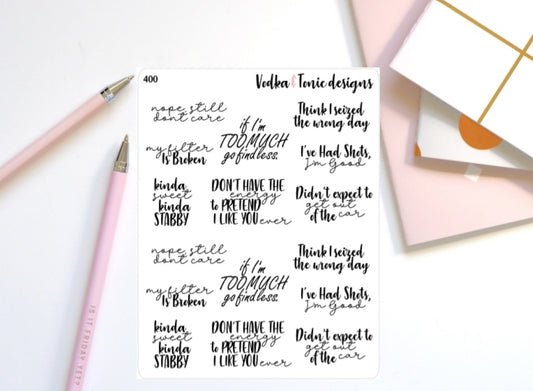 400
Vodka & Tonic designs
nope, still
dont care
if I'm
TOO MUCH
go find less.
Think I seized
the wrong day
my filter
Is Broken
I've Had Shots,
I'm Good
kinda
sweet
kinda
STABBY
DON'T HAVE THE
energy
to PRETEND
I LIKE YOU ever
Didn't expect to
get out
of the car
nope, still
dont care
if I'm
TOO MUCH
go find less.
Think I seized
the wrong day
my filter
Is Broken
I've Had Shots,
I'm Good
kinda
sweet
kinda
STABBY
DON'T HAVE THE
energy
to PRETEND
I LIKE YOU ever
Didn't expect to
get out
of the car
IS IT FRIDAY YET?